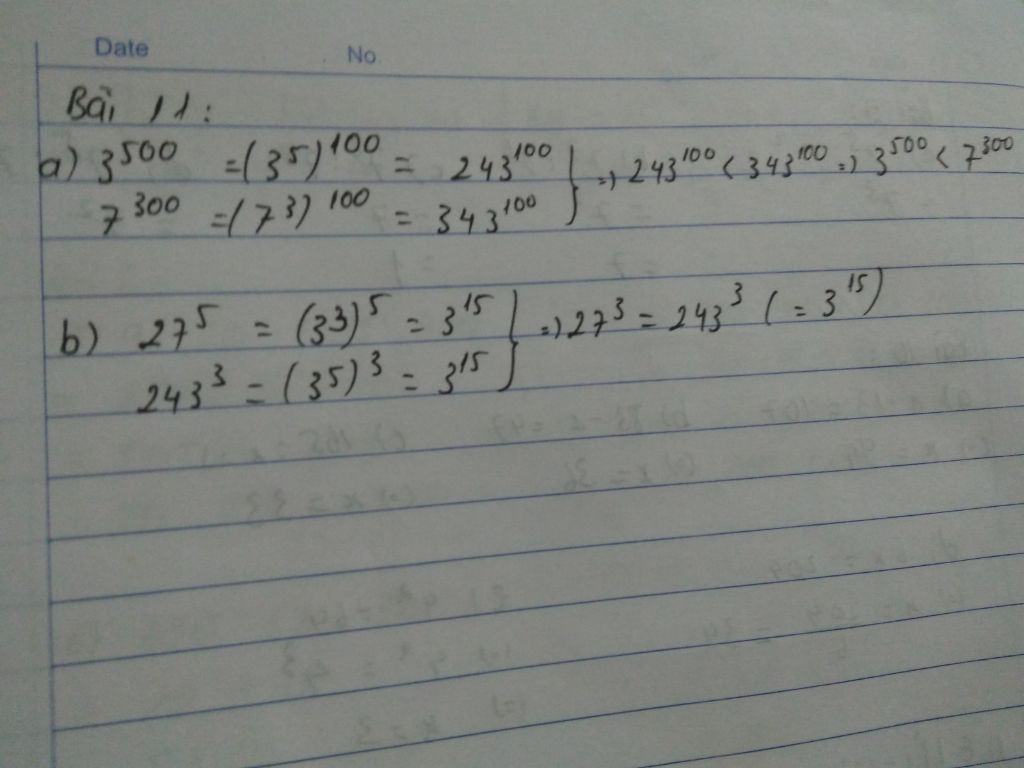 Date No.
Bài 11:
a) 3^500 = (3^5)^100 = 243^100 } => 243^100 < 343^100 => 3^500 < 7^300
7^300 = (7^3)^100 = 343^100
b) 27^5 = (3^3)^5 = 3^15 } => 27^3 = 243^3 (= 3^15)
243^3 = (3^5)^3 = 3^15